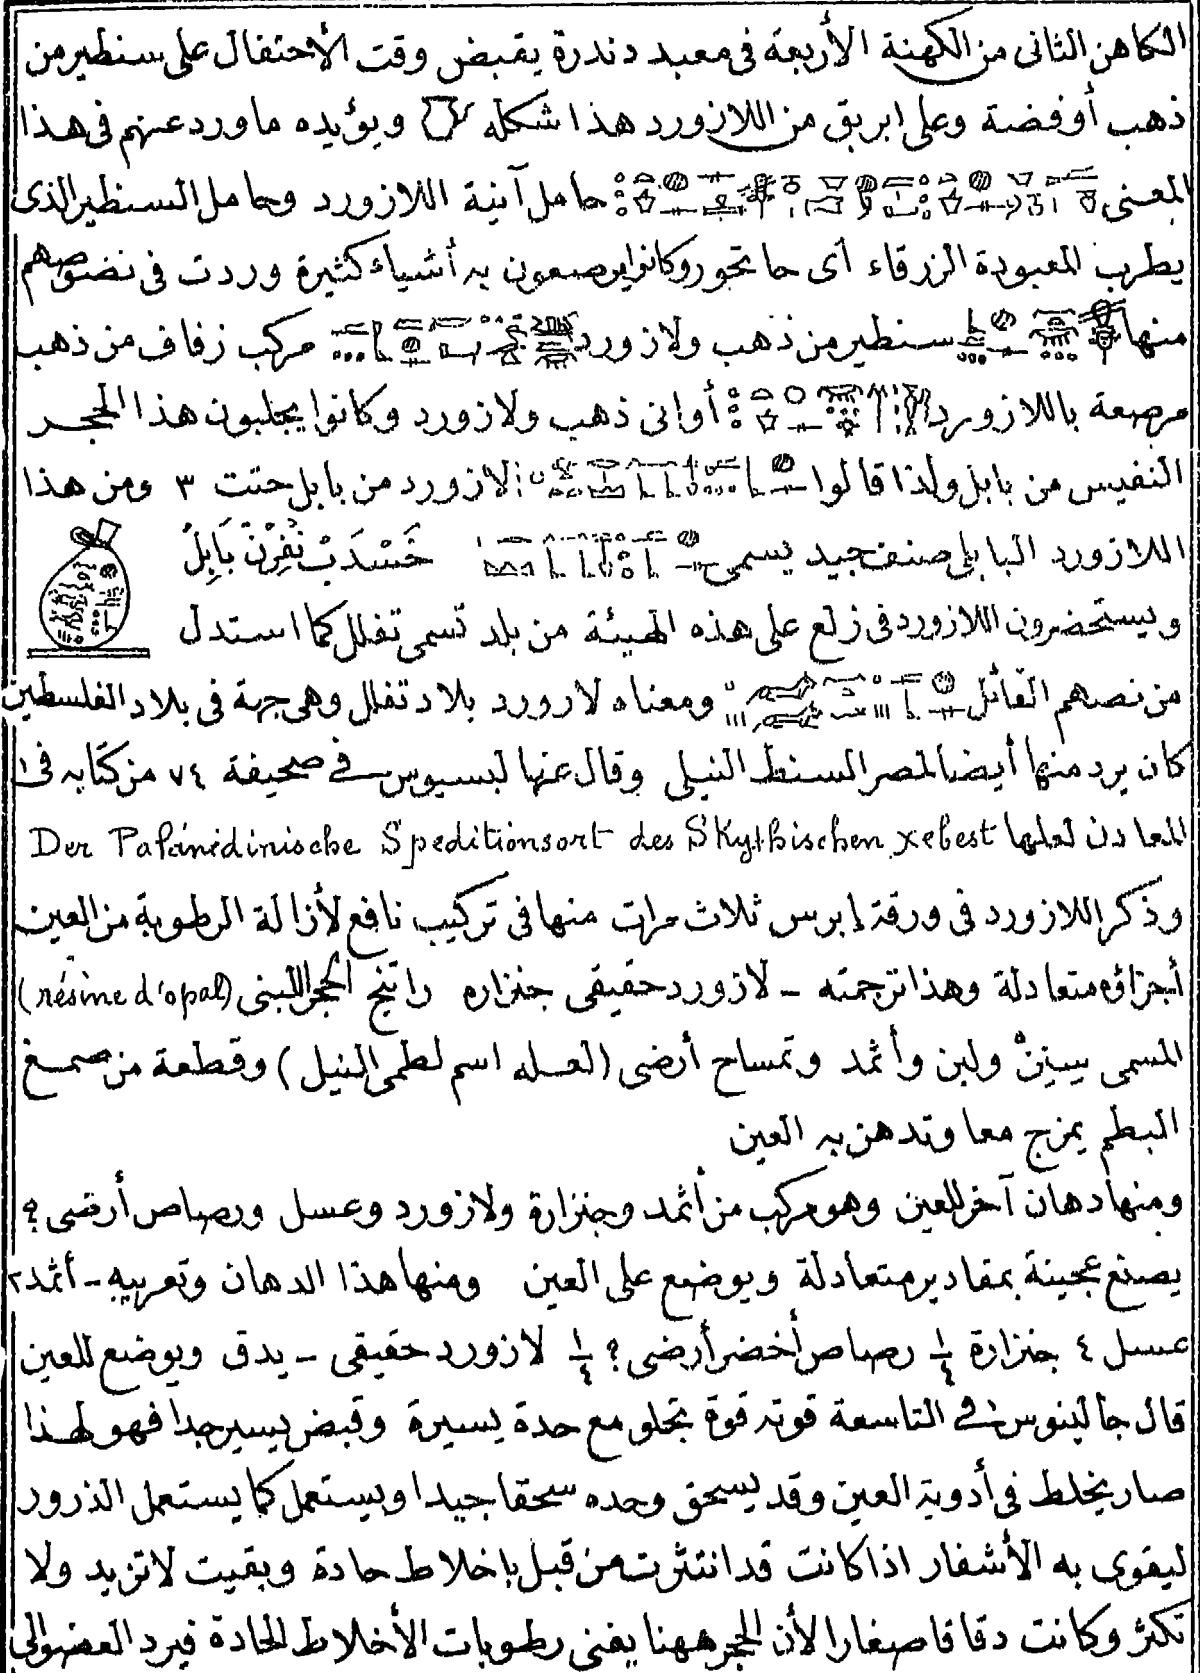 الكاهن الثانى من الكهنة الأربعة فى معبد دندرة يقبض وقت الأحتفال على سنطير من
ذهب أوفضة وعلى ابريق من اللازورد هذا شكله ويؤيده ماورد عنهم فى هذا
المعنى حامل آنية اللازورد وحامل السنطير الذى
يطرب المعبودة الزرقاء أى حاتحور وكانوا يرصعون به أشياء كثيرة وردت فى نصوصهم
منها سنطير من ذهب ولازورد مركب زفاف من ذهب
مرصعة باللازورد أوانى ذهب ولازورد وكانوا يجلبون هذا الحجر
النفيس من بابل ولذا قالوا لازورد من بابل حتت ٣ ومن هذا
اللازورد البابلى صنف جيد يسمى خَسْدَبْ نُفِرْنْ بَابِلُ
ويستحضرون اللازورد فى زلع على هذه الهيئة من بلد تسمى تفلل كما استدل
من نصهم القائل ومعناه لازورد بلاد تفلل وهى جهة فى بلاد الفلسطين
كان يرد منها أيضا لمصر السنط النيلى وقال عنها لبسيوس فى صحيفة ٧٤ من كتابه فى
المعادن لعلها Der Palänidinische Speditionsort des Skythischen xebest
وذكر اللازورد فى ورقة إبرس ثلاث مرات منها فى تركيب نافع لأزالة الرطوبة من العين
أجزاؤه متعادلة وهذا ترجمته - لازورد حقيقى جنزاره راتنج الحجر اللبنى (résine d'opal)
المسمى ولبن وأثمد وتمساح أرضى (لعله اسم لطمى النيل) وقطعة من صمغ
البطم يمزج معا وتدهن به العين
ومنها دهان آخر للعين وهو مركب من أثمد وجنزارة ولازورد وعسل ورصاص أرضى ؟
يصنع عجينة بمقادير متعادلة ويوضع على العين ومنها هذا الدهان وتعريبه - أثمد ٢
عسل ٤ جنزارة ١/٤ رصاص أخضر أرضى ؟ ١/٤ لازورد حقيقى - يدق ويوضع للعين
قال جالينوس فى التاسعة قوته قوة تجلو مع حدة يسيرة وقبض يسير جدا فهو لهذا
صار يخلط فى أدوية العين وقد يسحق وحده سحقا جيدا ويستعمل كما يستعمل الذرور
ليقوى به الأشفار اذا كانت قد انتثرت من قبل باخلاط حادة وبقيت لاتزيد ولا
تكثر وكانت دقاقا صغارا لأن الحجر ههنا يفنى رطوبات الأخلاط الحادة فيرد العضو الى